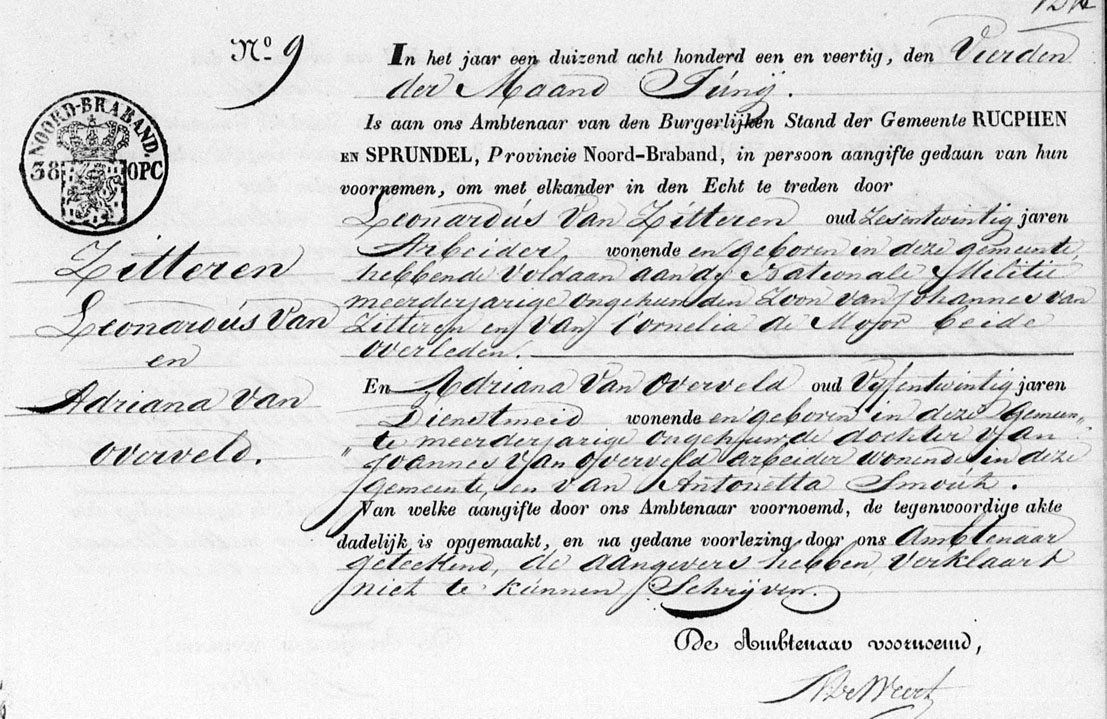 No. 9
In het jaar een duizend acht honderd een en veertig, den Vierden
der Maand Júnij.
Is aan ons Ambtenaar van den Burgerlijken Stand der Gemeente RUCPHEN
EN SPRUNDEL, Provincie Noord-Braband, in persoon aangifte gedaan van hun
voornemen, om met elkander in den Echt te treden door
Leonardús Van Zitteren oud Zesentwintig jaren
Arbeider wonende en geboren in deze gemeente,
hebbende Voldaan aan de Nationale Militie
meerderjarige ongehuwden Zoon van Johannes van
Zitteren en Van Cornelia de Mooor beide
overleden.
En Adriana Van Overveld oud Vyfentwintig jaren
Dienstmeid wonende en geboren in deze Gemeen-
"te meerderjarige ongehuwde dochter Van
Joannes Van Overveld arbeider wonende in deze
gemeente, en Van Antonetta Smoút.
Van welke aangifte door ons Ambtenaar voornoemd, de tegenwoordige akte
dadelijk is opgemaakt, en na gedane voorlezing door ons Ambtenaar
geteekend, de aangevers hebben Verklaart
niet te kúnnen Schrijven.
De Ambtenaar voornoemd,
NOORD-BRABAND.
38 OPC
Zitteren
Leonardús Van
en
Adriana Van
Overveld.